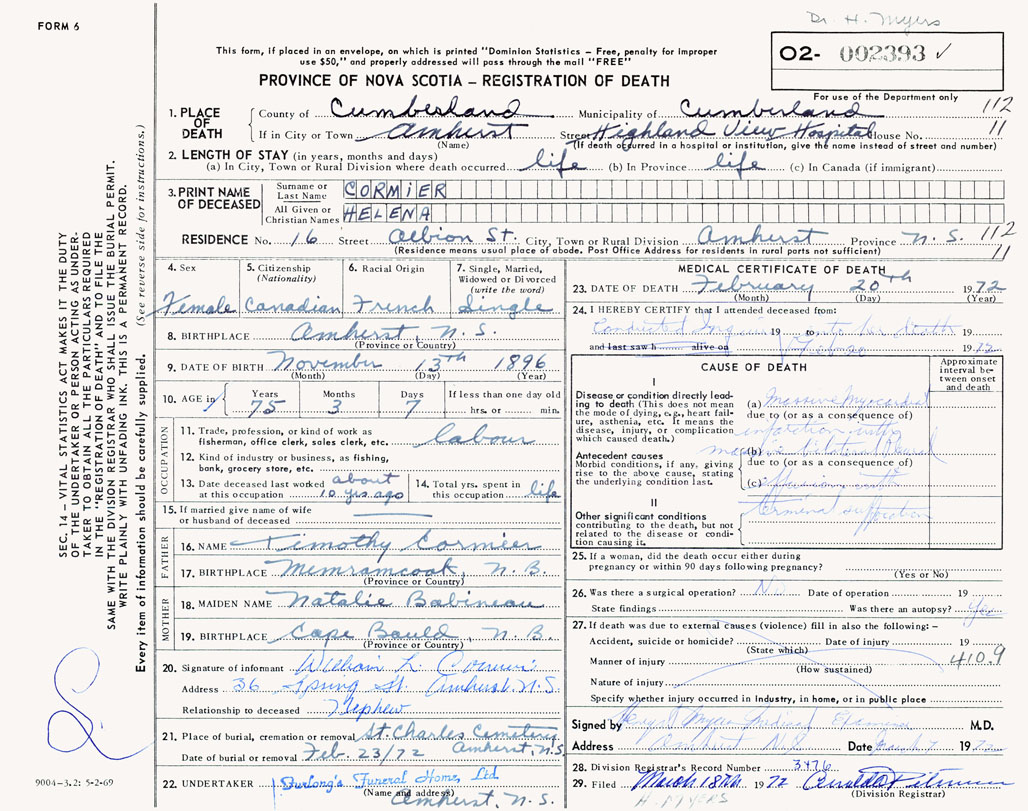 FORM 6
Dr. H. Myers
This form, if placed in an envelope, on which is printed "Dominion Statistics – Free, penalty for improper
use $50," and properly addressed will pass through the mail "FREE"
PROVINCE OF NOVA SCOTIA – REGISTRATION OF DEATH
02- 002393 ✓
For use of the Department only
1. PLACE OF DEATH
County of Cumberland Municipality of Cumberland 112
If in City or Town Amherst Street Highland View Hospital House No. 11
(Name) (If death occurred in a hospital or institution, give the name instead of street and number)
2. LENGTH OF STAY (in years, months and days)
(a) In City, Town or Rural Division where death occurred life (b) In Province life (c) In Canada (if immigrant)
3. PRINT NAME OF DECEASED
Surname or Last Name CORMIER
All Given or Christian Names HELENA
RESIDENCE No. 16 Street Albion St. City, Town or Rural Division Amherst Province N.S. 112
(Residence means usual place of abode. Post Office Address for residents in rural parts not sufficient) 11
4. Sex
Female
5. Citizenship (Nationality)
Canadian
6. Racial Origin
French
7. Single, Married, Widowed or Divorced (write the word)
Single
8. BIRTHPLACE Amherst, N.S.
(Province or Country)
9. DATE OF BIRTH November 13th 1896
(Month) (Day) (Year)
10. AGE in Years Months Days If less than one day old
75 3 7 hrs. or min.
OCCUPATION
11. Trade, profession, or kind of work as fisherman, office clerk, sales clerk, etc. labour
12. Kind of industry or business, as fishing, bank, grocery store, etc.
13. Date deceased last worked at this occupation about 10 yrs. ago
14. Total yrs. spent in this occupation life
15. If married give name of wife or husband of deceased
FATHER
16. NAME Timothy Cormier
17. BIRTHPLACE Memramcook, N.B.
(Province or Country)
MOTHER
18. MAIDEN NAME Natalie Babineau
19. BIRTHPLACE Cape Bauld, N.B.
(Province or Country)
20. Signature of informant William L. Cormier
Address 36 Spring St. Amherst, N.S.
Relationship to deceased Nephew
21. Place of burial, cremation or removal St. Charles Cemetery
Amherst, N.S.
Date of burial or removal Feb. 23/72
22. UNDERTAKER Furlong's Funeral Home, Ltd.
(Name and address) Amherst, N.S.
MEDICAL CERTIFICATE OF DEATH
23. DATE OF DEATH February 20th 1972
(Month) (Day) (Year)
24. I HEREBY CERTIFY that I attended deceased from:
Conducted 19 to her death 19
and last saw h alive on Feb 20 1972
CAUSE OF DEATH
Approximate interval between onset and death
I
Disease or condition directly leading to death (This does not mean the mode of dying, e.g., heart failure, asthenia, etc. It means the disease, injury, or complication which caused death.)
(a) Massive Myocardial
due to (or as a consequence of)
infarction with
Antecedent causes
Morbid conditions, if any, giving rise to the above cause, stating the underlying condition last.
(b) massive bilateral pleural
due to (or as a consequence of)
(c) effusions with
II
Other significant conditions contributing to the death, but not related to the disease or condition causing it.
terminal suffocation
25. If a woman, did the death occur either during pregnancy or within 90 days following pregnancy?
(Yes or No)
26. Was there a surgical operation? No Date of operation 19
State findings Was there an autopsy? Yes
27. If death was due to external causes (violence) fill in also the following: –
Accident, suicide or homicide? Date of injury 19
(State which)
Manner of injury 410.9
(How sustained)
Nature of injury
Specify whether injury occurred in industry, in home, or in public place
Signed by Myers Medical Examiner M.D.
Address Amherst N.S. Date March 7 1972
28. Division Registrar's Record Number 3476
29. Filed March 18th 1972
(Division Registrar)
H. MYERS
SEC. 14 – VITAL STATISTICS ACT MAKES IT THE DUTY
OF THE UNDERTAKER OR PERSON ACTING AS UNDER-
TAKER TO OBTAIN ALL THE PARTICULARS REQUIRED
IN THE "REGISTRATION OF DEATH" AND TO FILE THE
SAME WITH THE DIVISION REGISTRAR WHO SHALL ISSUE THE BURIAL PERMIT.
WRITE PLAINLY WITH UNFADING INK. THIS IS A PERMANENT RECORD.
Every item of information should be carefully supplied. (See reverse side for instructions.)
9004-3.2: 5-2-69